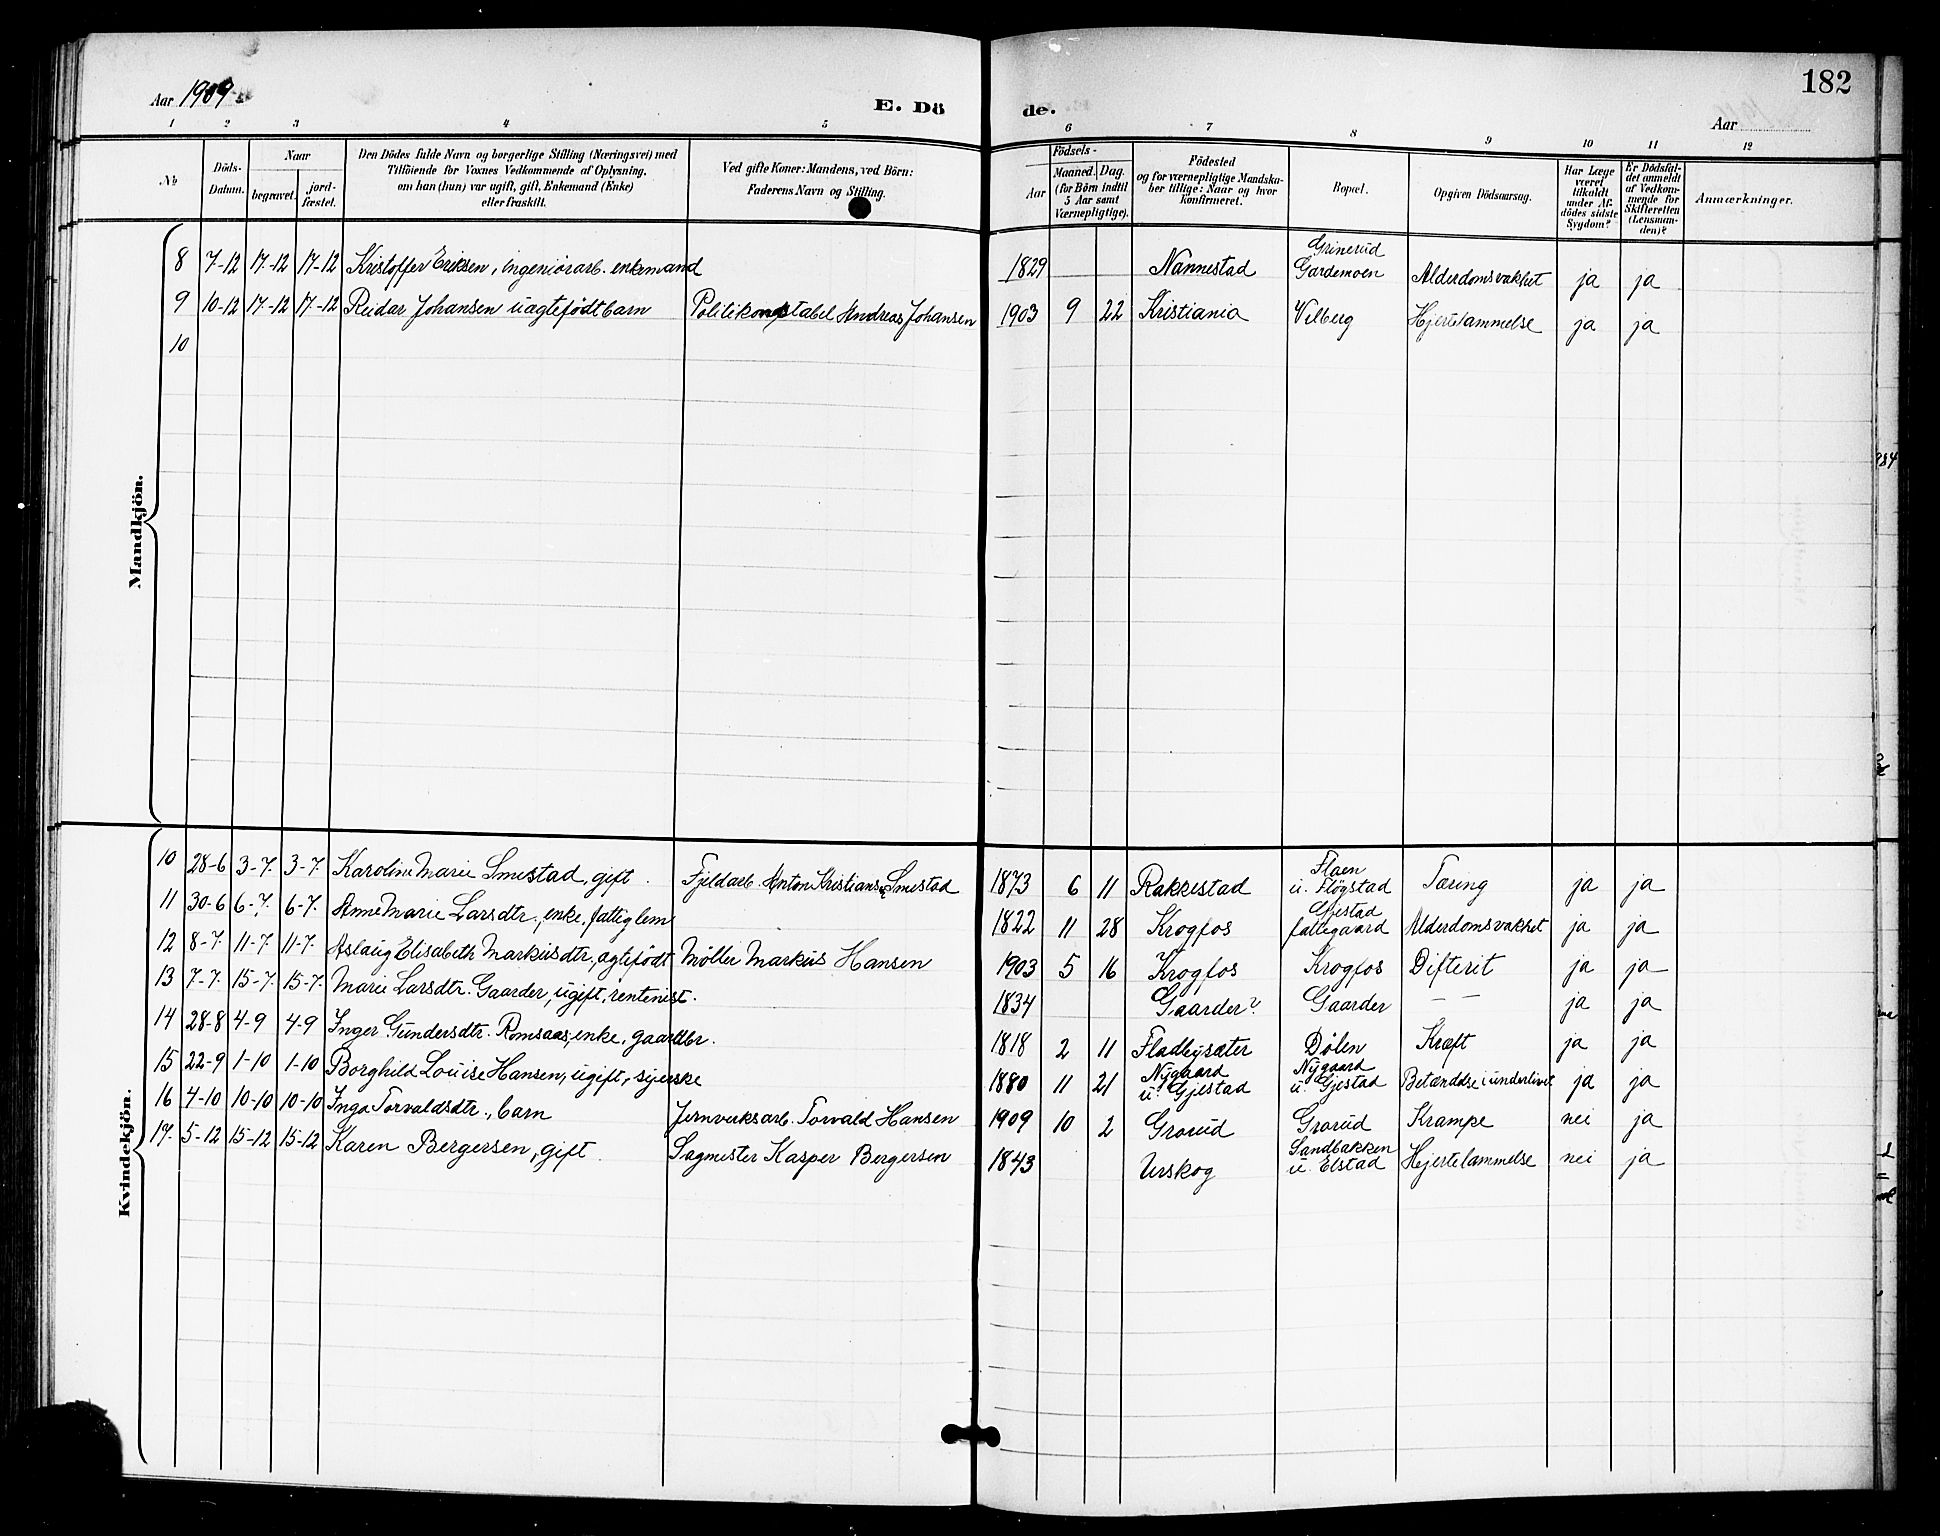 182
Aar 1909
E. Döde.
Aar
1 2 3 4 5 6 7 8 9 10 11 12
№
Döds-Datum.
Naar
begravet.
jordfæstet.
Den Dödes fulde Navn og borgerlige Stilling (Næringsvei) med
Tilföiende for Voxnes Vedkommende af Oplysning,
om han (hun) var ugift, gift, Enkemand (Enke)
eller fraskilt.
Ved gifte Koner: Mandens, ved Börn:
Faderens Navn og Stilling.
Födsels-
Aar
Maaned.
Dag.
(for Börn indtil
5 Aar samt
Værnepligtige).
Födested
og for værnepligtige Mandskaber tillige: Naar og hvor
konfirmeret.
Bopæl.
Opgiven Dödsaarsag.
Har Læge
været
tilkaldt
under Afdödes sidste
Sygdom?
Er Dödsfaldet anmeldt
af Vedkommende for
Skifteretten
(Lensmanden)?
Anmærkninger.
Mandkjön.
8 7-12 17-12 17-12 Kristoffer Eriksen, ingeniørarb. enkemand 1829 Nannestad Grinerud Gardemoen Alderdomsvakhet ja ja
9 10-12 17-12 17-12 Reidar Johansen uægtefødt barn Politikonstabel Andreas Johansen 1903 9 22 Kristiania Vilberg Hjertelammelse ja ja
10
Kvindekjön.
10 28-6 3-7. 3-7. Karoline Marie Smestad, gift. Fjeldarb. Anton Kristians. Smestad 1873 6 11 Rakkestad Flaen u. Fløgstad Tæring ja ja
11 30-6 6-7. 6-7. Anne Marie Larsdtr., enke, fattiglem 1822 11 28 Krogfos Gjestad fattigaard Alderdomsvakhet ja ja
12 8-7. 11-7. 11-7. Aslaug Elisabeth Markusdtr., ægtefødt Møller Markus Hansen 1903 5 16 Krogfos Krogfos Difterit ja ja
13 7-7. 15-7. 15-7. Marie Larsdtr. Gaarder, ugift, rentenist. 1834 Gaarder? Gaarder — — ja ja
14 28-8 4-9 4-9 Inger Gundersdtr. Romsaas, enke, gaardbr. 1818 2 11 Fladbysæter Dølen Kræft ja ja
15 22-9 1-10 1-10 Borghild Louise Hansen, ugift, syerske 1880 11 21 Nygaard u. Gjestad Nygaard u. Gjestad Betændelse i underlivet ja ja
16 4-10 10-10 10-10 Inga Torvaldsdtr., barn Jernverksarb. Torvald Hansen 1909 10 2 Grorud Grorud Krampe nei ja
17. 5-12 15-12 15-12 Karen Bergersen, gift. Sagmester Kasper Bergersen 1843 Urskog Sandbakken u. Elstad Hjertelammelse nei ja